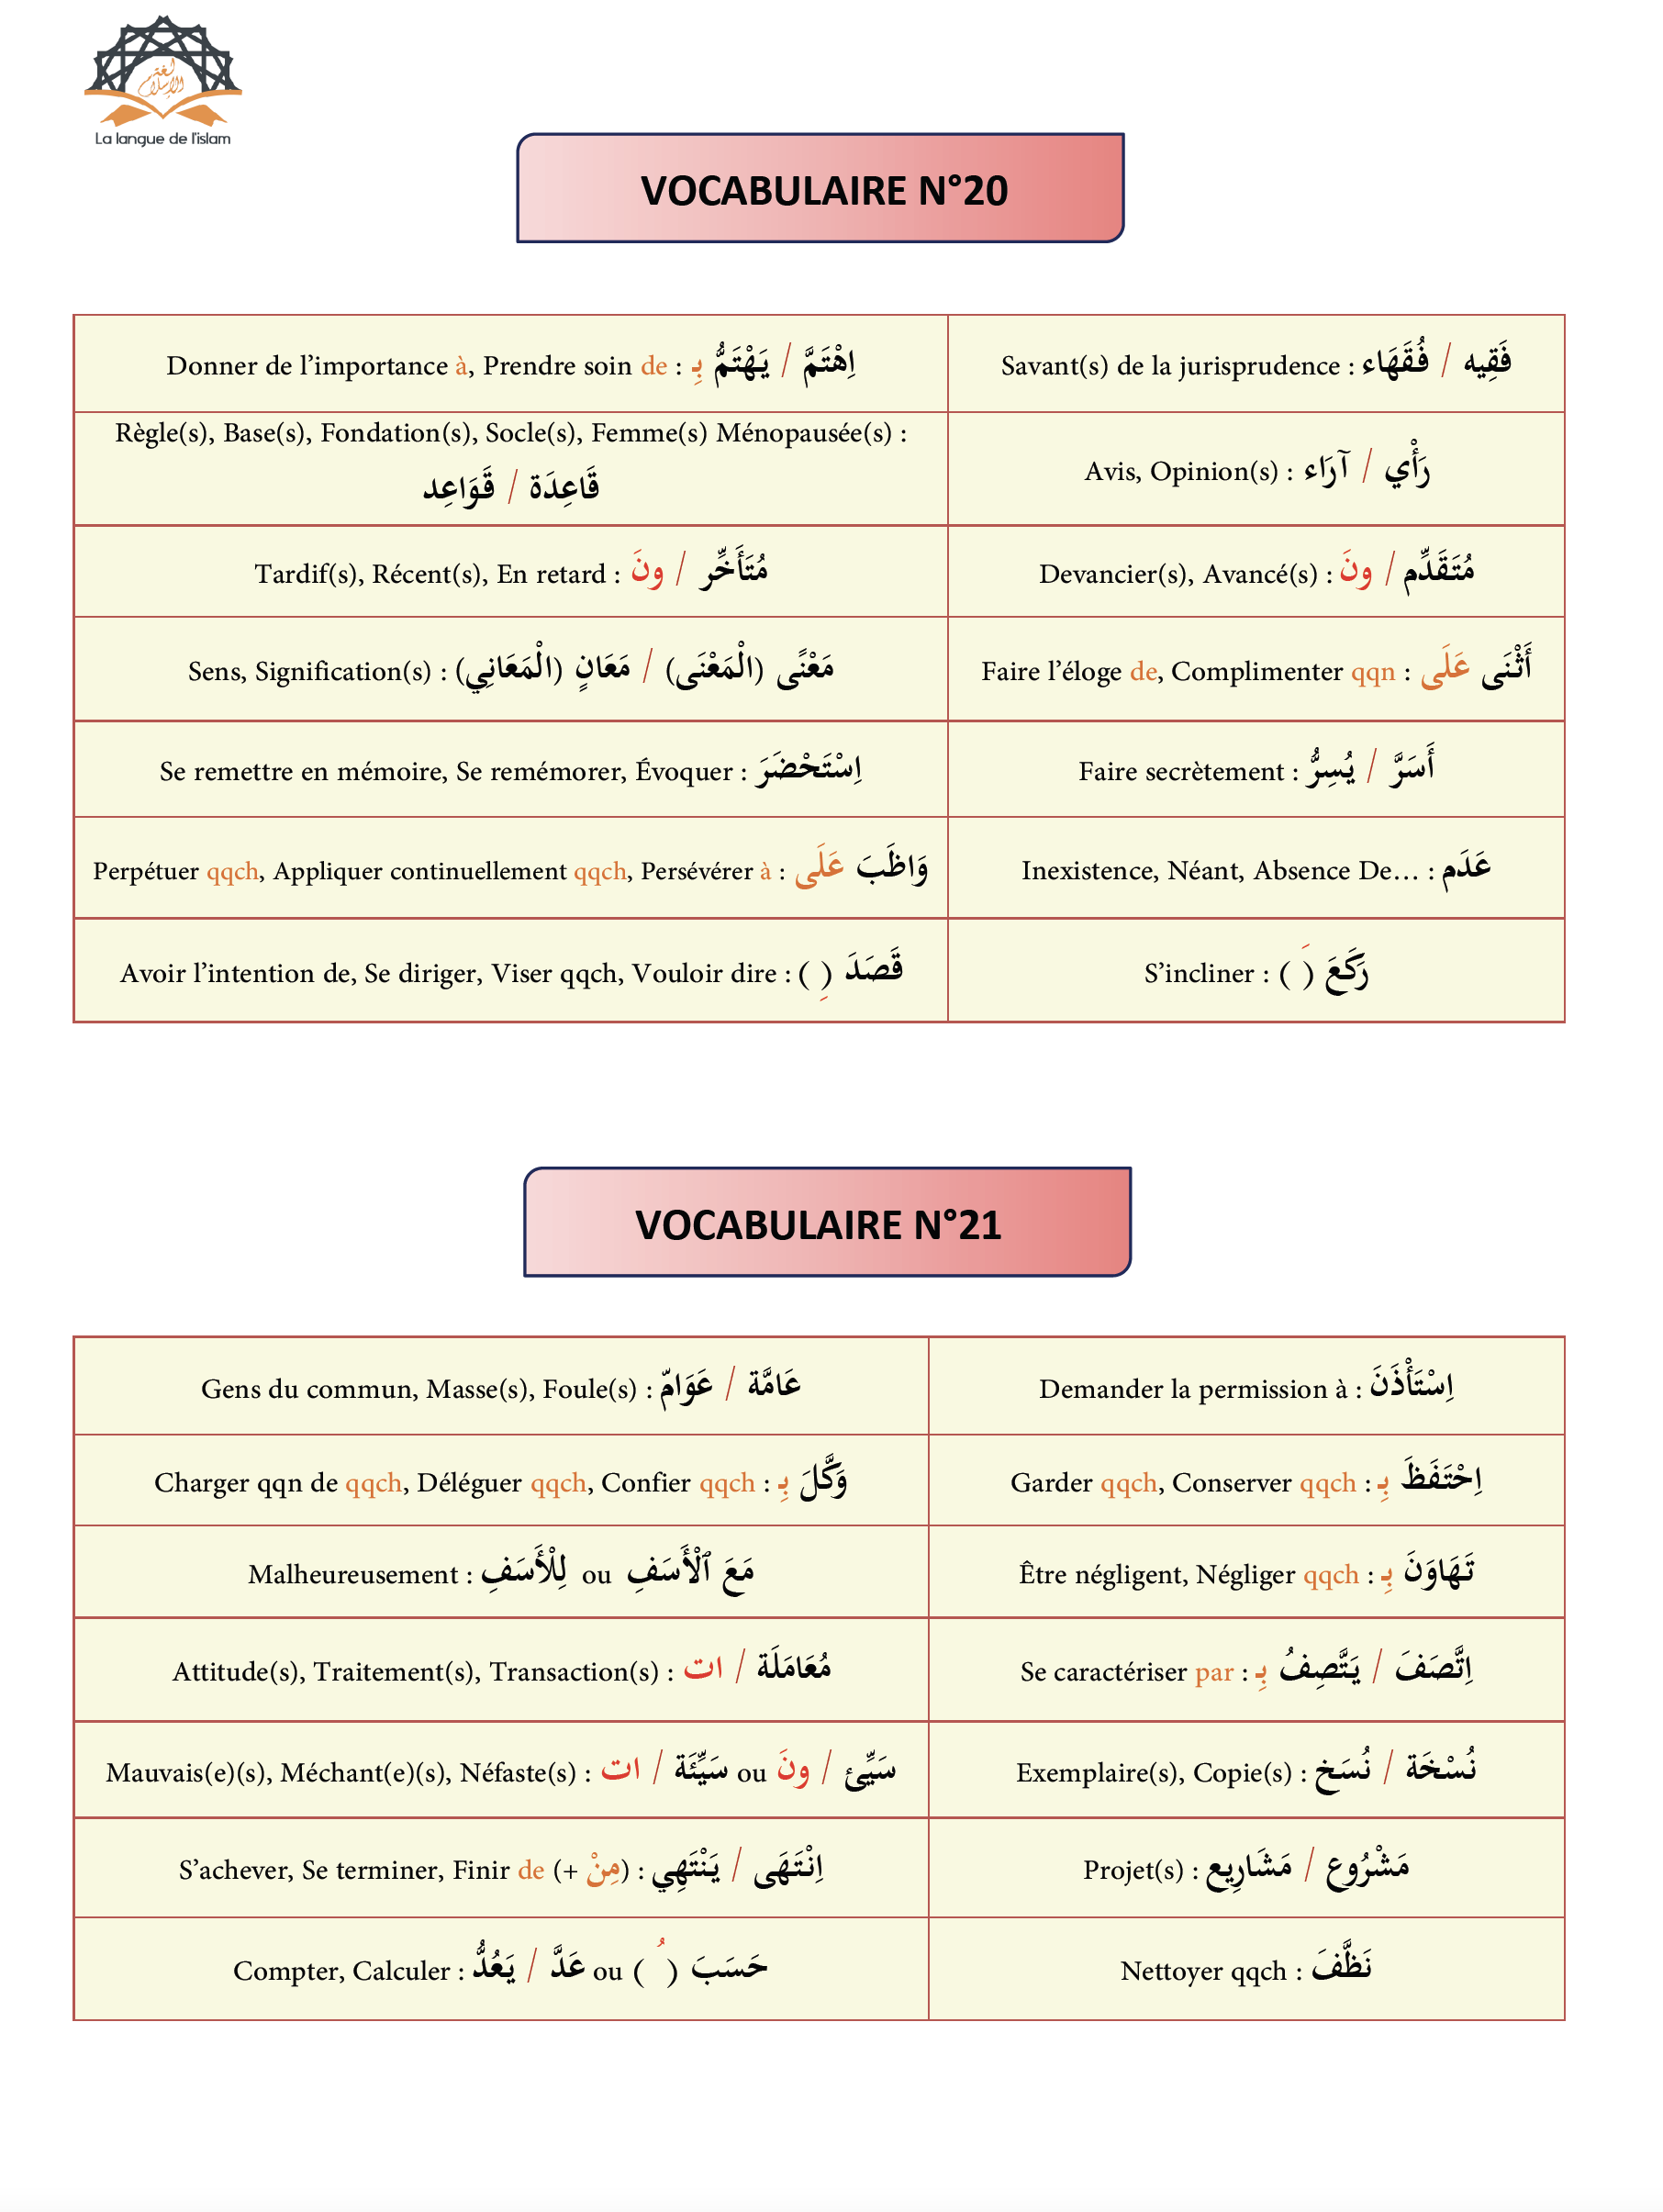 لغة الإسلام
La langue de l'islam
VOCABULAIRE N°20
Donner de l’importance à, Prendre soin de : اِهْتَمَّ / يَهْتَمُّ بِـ
Savant(s) de la jurisprudence : فَقِيه / فُقَهَاء
Règle(s), Base(s), Fondation(s), Socle(s), Femme(s) Ménopausée(s) :
قَاعِدَة / قَوَاعِد
Avis, Opinion(s) : رَأْي / آرَاء
Tardif(s), Récent(s), En retard : مُتَأَخِّر / ونَ
Devancier(s), Avancé(s) : مُتَقَدِّم / ونَ
Sens, Signification(s) : مَعْنًى (الْمَعْنَى) / مَعَانٍ (الْمَعَانِي)
Faire l’éloge de, Complimenter qqn : أَثْنَى عَلَى
Se remettre en mémoire, Se remémorer, Évoquer : اِسْتَحْضَرَ
Faire secrètement : أَسَرَّ / يُسِرُّ
Perpétuer qqch, Appliquer continuellement qqch, Persévérer à : وَاظَبَ عَلَى
Inexistence, Néant, Absence De… : عَدَم
Avoir l’intention de, Se diriger, Viser qqch, Vouloir dire : قَصَدَ ( ِ )
S’incliner : رَكَعَ ( َ )
VOCABULAIRE N°21
Gens du commun, Masse(s), Foule(s) : عَامَّة / عَوَامّ
Demander la permission à : اِسْتَأْذَنَ
Charger qqn de qqch, Déléguer qqch, Confier qqch : وَكَّلَ بِـ
Garder qqch, Conserver qqch : اِحْتَفَظَ بِـ
Malheureusement : لِلْأَسَفِ ou مَعَ ٱلْأَسَفِ
Être négligent, Négliger qqch : تَهَاوَنَ بِـ
Attitude(s), Traitement(s), Transaction(s) : مُعَامَلَة / ات
Se caractériser par : اِتَّصَفَ / يَتَّصِفُ بِـ
Mauvais(e)(s), Méchant(e)(s), Néfaste(s) : سَيِّئَة / ات ou سَيِّئ / ونَ
Exemplaire(s), Copie(s) : نُسْخَة / نُسَخ
S’achever, Se terminer, Finir de (+ مِنْ) : اِنْتَهَى / يَنْتَهِي
Projet(s) : مَشْرُوع / مَشَارِيع
Compter, Calculer : عَدَّ / يَعُدُّ ou حَسَبَ ( ُ )
Nettoyer qqch : نَظَّفَ